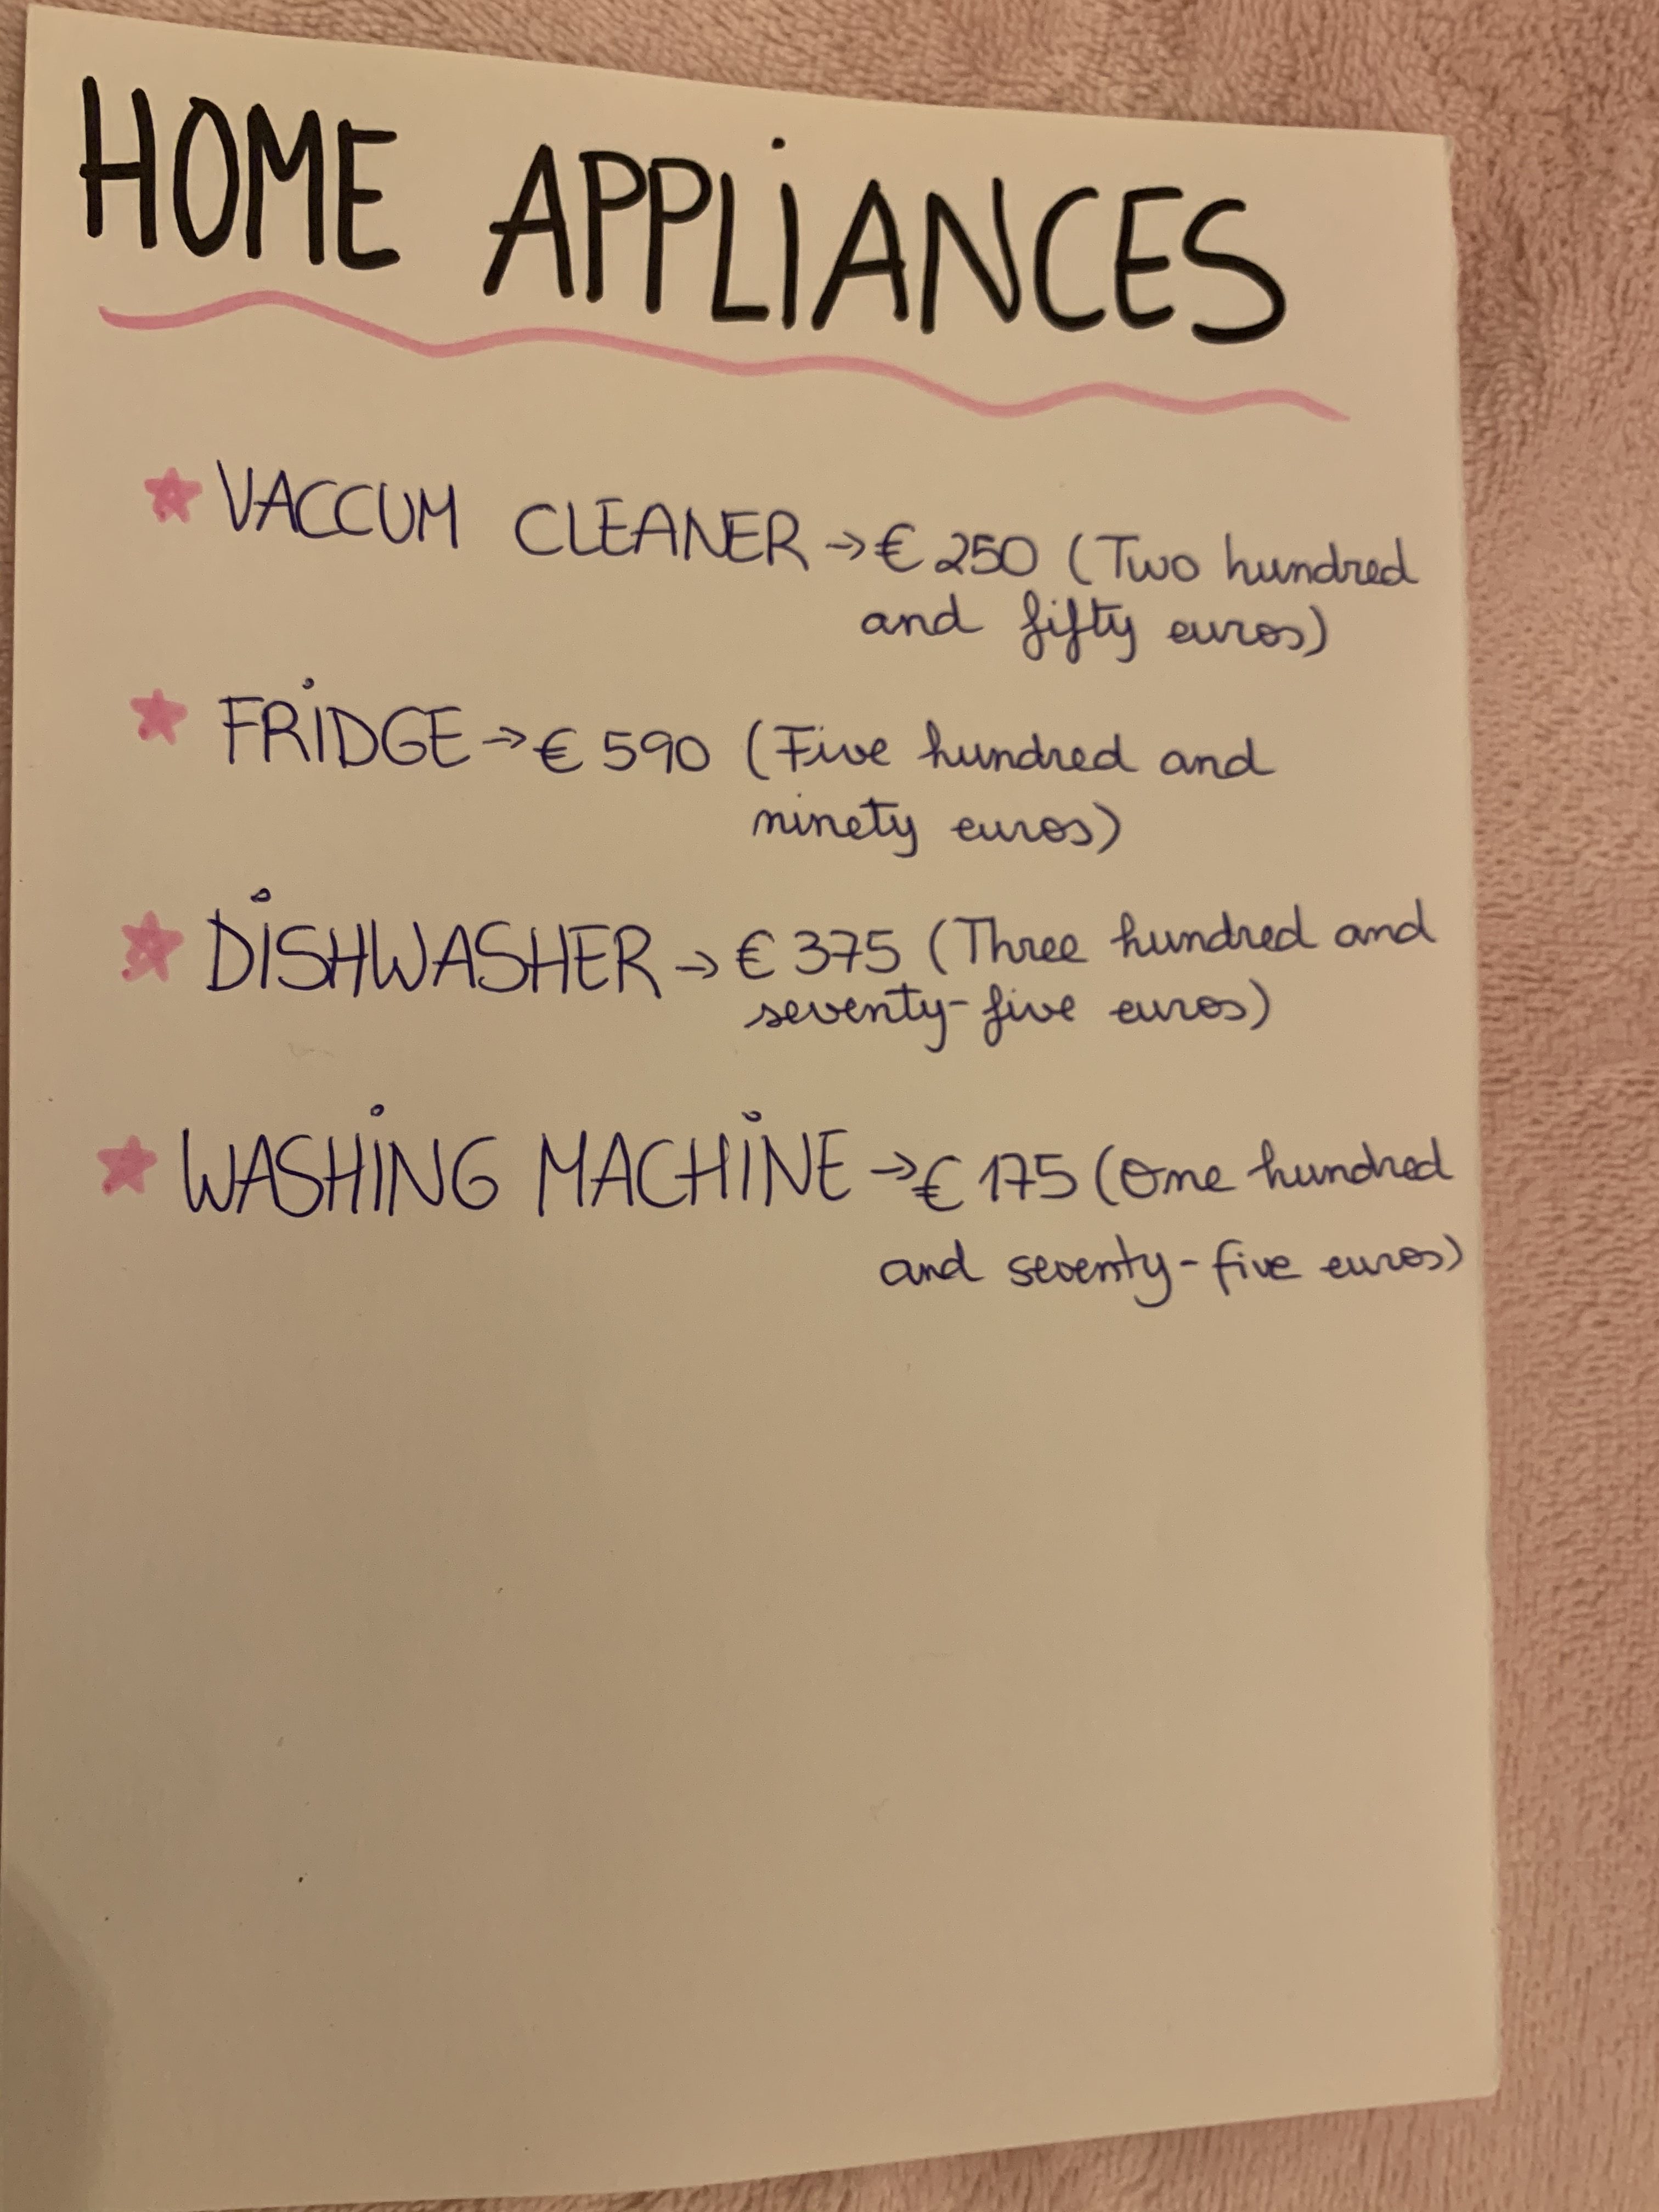 HOME APPLIANCES
VACCUM CLEANER → € 250 (Two hundred
and fifty euros)
FRIDGE → € 590 (Five hundred and
ninety euros)
DISHWASHER → € 375 (Three hundred and
seventy-five euros)
WASHING MACHINE → € 175 (One hundred
and seventy-five euros)